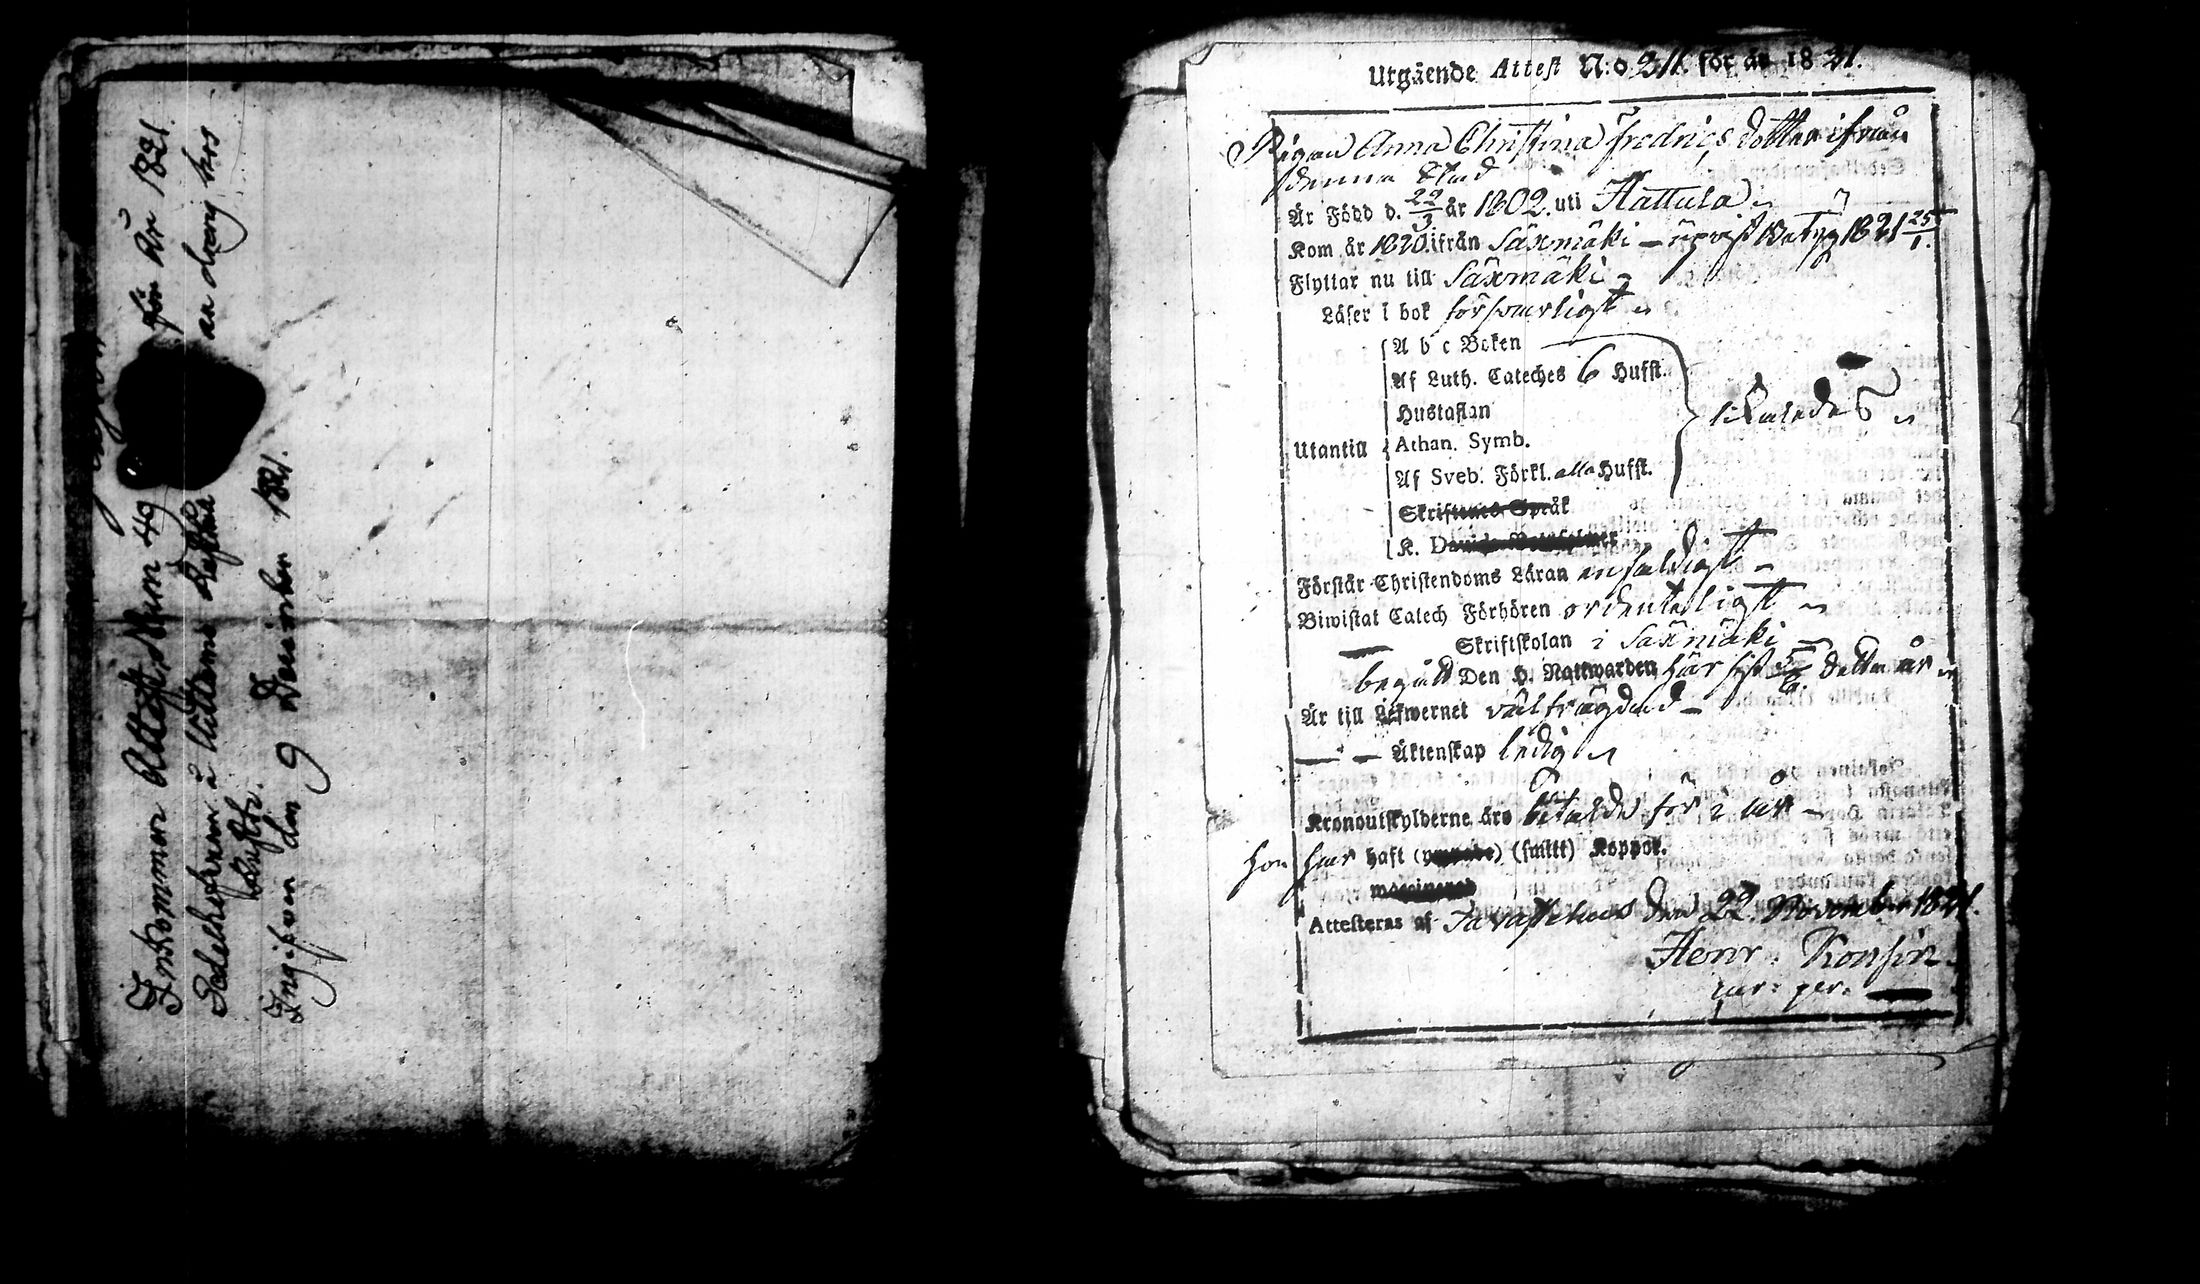 Inkommen Attest Num 49 för År 1821.
Sedelhafvaren å en dräng hos
Ingifven den 9 December 1821.
Utgående Attest N:o 211. för år 1821.
Pigan Anna Christina Fredrics dotter ifrån
denna Stad
Är Född d. 22/3 år 1802. uti Hattula
Kom år 1820. ifrån Säxmäki - 1821 25/1.
Flyttar nu till Säxmäki
Läser i bok försvarligt
A b c Boken
Af Luth. Cateches 6 Hufst.
Hustaflan
likaledes
Utantill Athan. Symb.
Af Sveb. Förkl. alla Hufst.
Skriftenes Språk
K. Davids
Förstår Christendoms Läran enfaldigt -
Biwistat Catech Förhören ordenteligt
— Skriftskolan i Säxmäki -
begått Den H. Nattwarden här sist detta år
Är till Lefwernet välfrägdad -
— " — Äktenskap ledig
Kronoutskylderne äro betalde för i år -
hon har haft (smitt) Koppor.
Attesteras af Tavastehus den 22. November 1821.
Henr. Konsin.